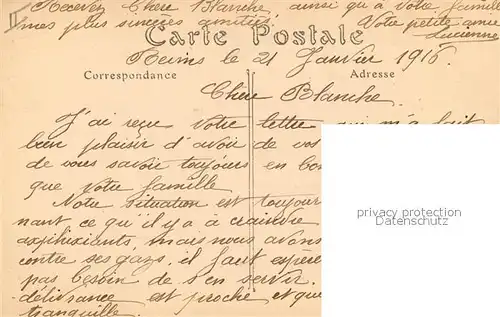 Recevez Chere Blanche, ainsi qu'à votre famille
mes plus sincères amitiés. Votre petite amie
Lucienne
Carte Postale
Reims le 21 Janvier 1916.
Correspondance Adresse
Chere Blanche.
J'ai reçu votre lettre qui m'a fait
bien plaisir d'avoir de vos
de vous savoir toujours en bon
que votre famille
Notre situation est toujour
nant ce qu'il y a à craindre
asphixiants, mais nous avons
contre ses gazs, il faut espére
pas besoin de s'en servir.
délivrance est proche et que
tranquille.
privacy protection
Datenschutz